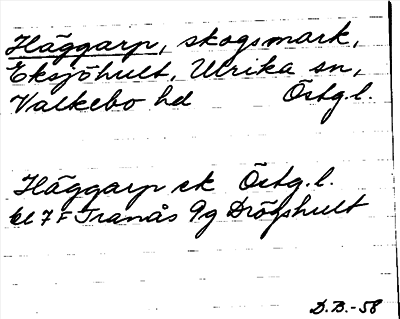 Häggarp, skogsmark,
Eksjöhult, Ulrika sn,
Valkebo hd Östg.l.
Häggarp ek Östg.l.
bl 7F Tranås 9g Drögshult
D.B.-58